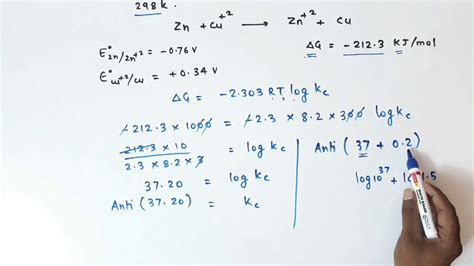 298 k.
Zn + Cu⁺² ⟶ Zn⁺² + Cu
E°Zn/Zn⁺² = -0.76 V
ΔG = -212.3 KJ/mol
E°Cu⁺²/Cu = +0.34 V
ΔG = -2.303 RT log Kc
-212.3 × 1000 = -2.3 × 8.2 × 300 log Kc
212.3 × 10 / 2.3 × 8.2 × 3 = log Kc
37.20 = log Kc
Anti (37.20) = Kc
Anti (37 + 0.2)
log10³⁷ +